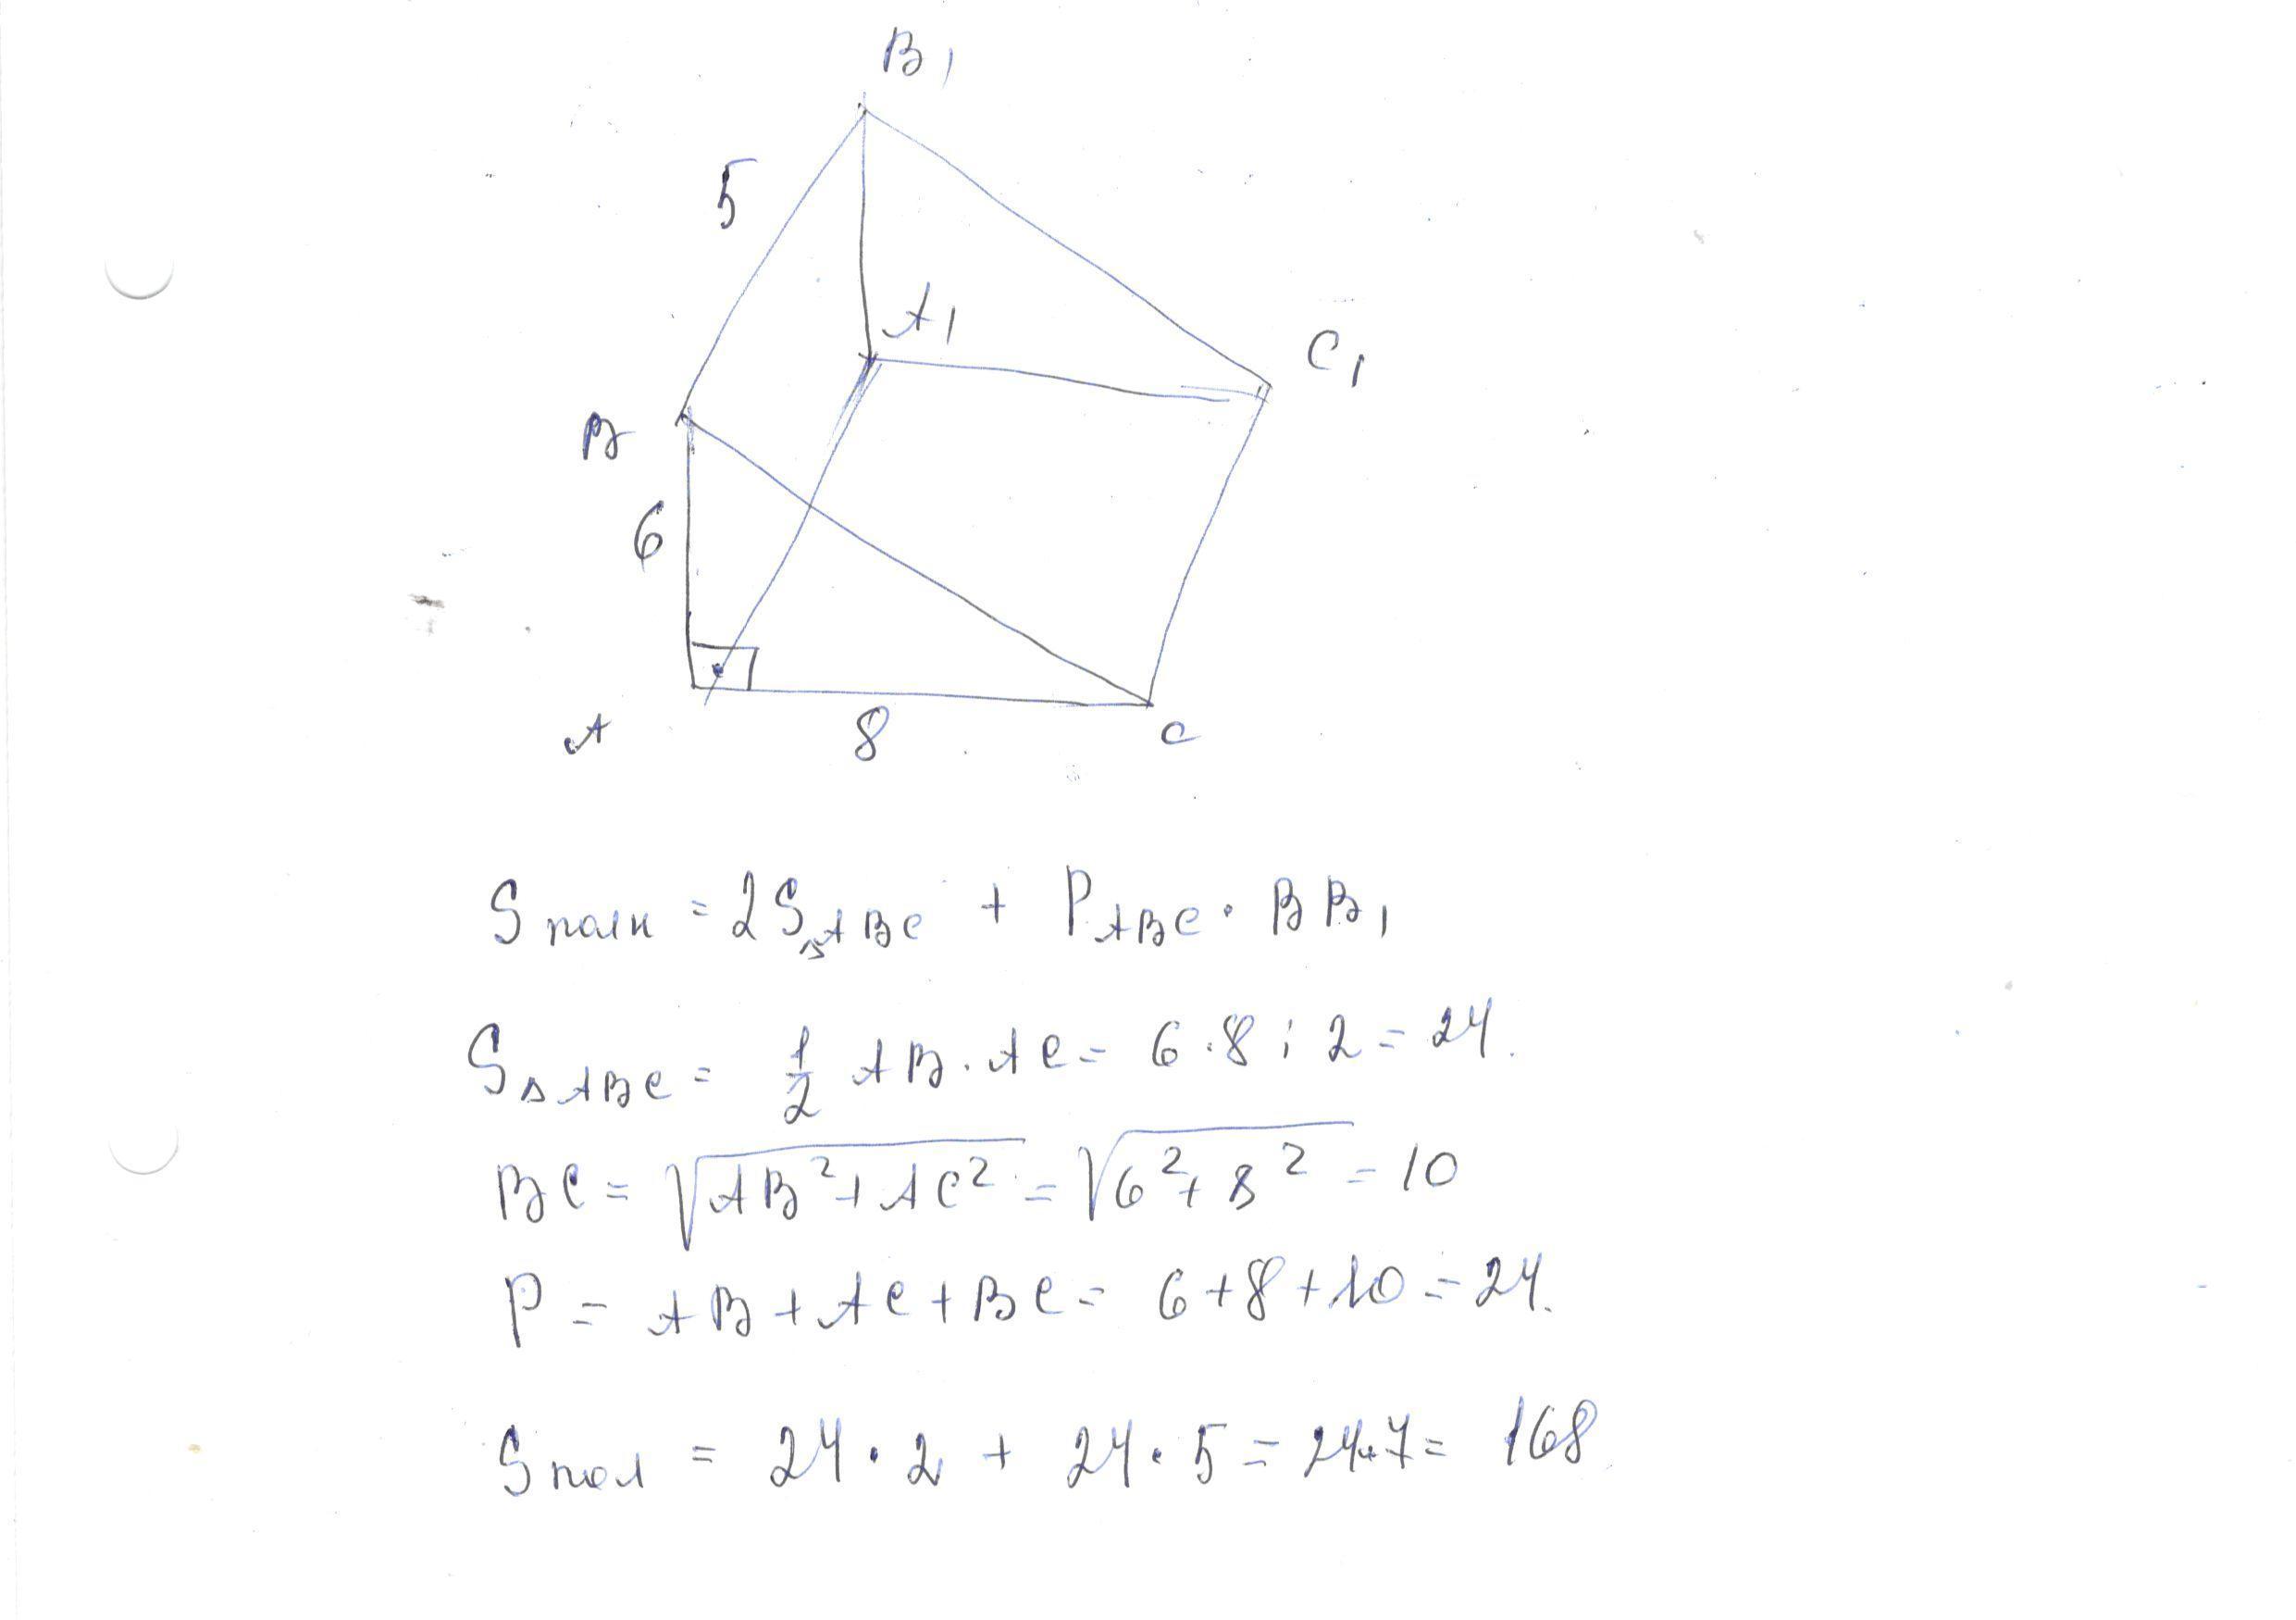 B₁
5
A₁
C₁
B
6
A
8
C
Sполн = 2S△ABC + PABC · BB₁
S△ABC = 1/2 AB · AC = 6 · 8 : 2 = 24.
BC = √(AB² + AC²) = √(6² + 8²) = 10
P = AB + AC + BC = 6 + 8 + 10 = 24.
Sпол = 24 · 2 + 24 · 5 = 24 · 7 = 168